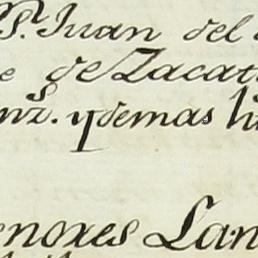 S. Juan del
e de Zacat
nz. y demas
enores Lan